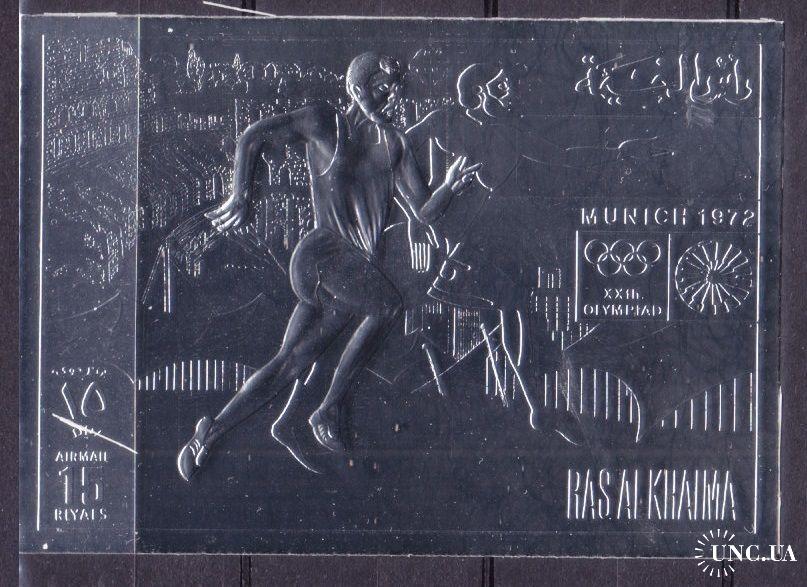 رأس الخيمة
MUNICH 1972
XXth.
OLYMPIAD
١٥
AIRMAIL
15
RIYALS
RAS AL KHAIMA
UNC.UA